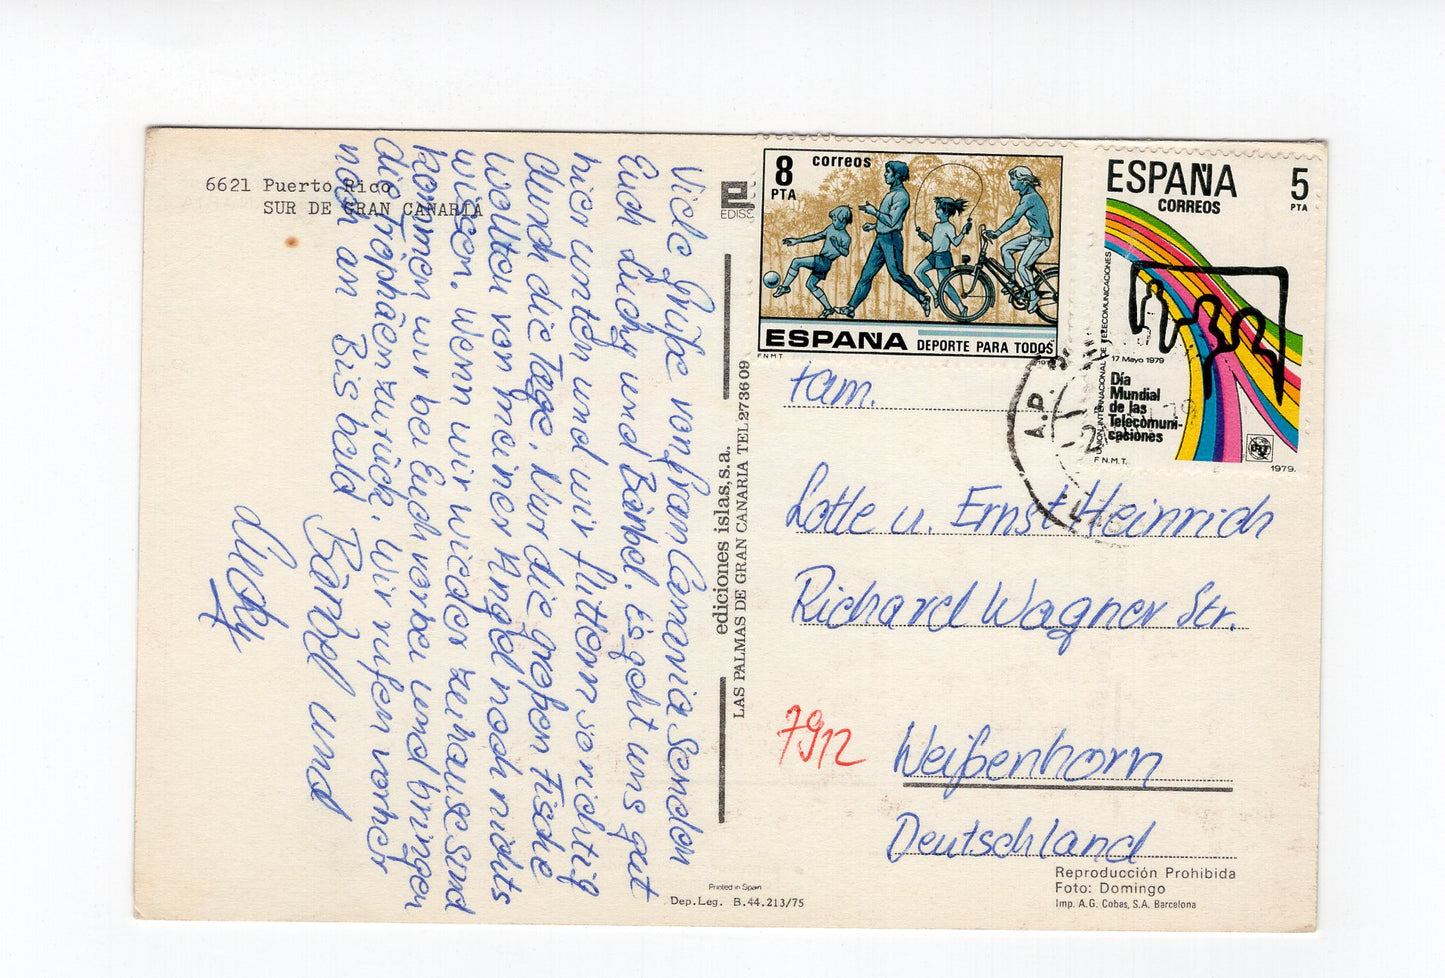 6621 Puerto Rico
SUR DE GRAN CANARIA
Viele Grüße von Gran Canaria senden
Euch Luchy und Bärbel. Es geht uns gut
hier unten und wir flittern so richtig
durch die Tage. Nur die großen Fische
wollten von meiner Angel noch nichts
wissen. Wenn wir wieder zuhause sind
kommen wir bei Euch vorbei und bringen
die Trophäen zurück. Wir rufen vorher
noch an Bis bald
Bärbel und
Luchy
ediciones islas, s.a.
LAS PALMAS DE GRAN CANARIA TEL 273609
Printed in Spain
Dep. Leg. B. 44.213/75
8
PTA
correos
ESPAÑA
DEPORTE PARA TODOS
F.N.M.T.
ESPAÑA
CORREOS
5
PTA
UNION INTERNACIONAL DE TELECOMUNICACIONES
17 Mayo 1979
Día
Mundial
de las
Telecomuni-
caciones
F.N.M.T.
1979.
A.P.
Fam.
Lotte u. Ernst Heinrich
Richard Wagner Str.
7912
Weißenhorn
Deutschland
Reproducción Prohibida
Foto: Domingo
Imp. A.G. Cobas, S.A. Barcelona